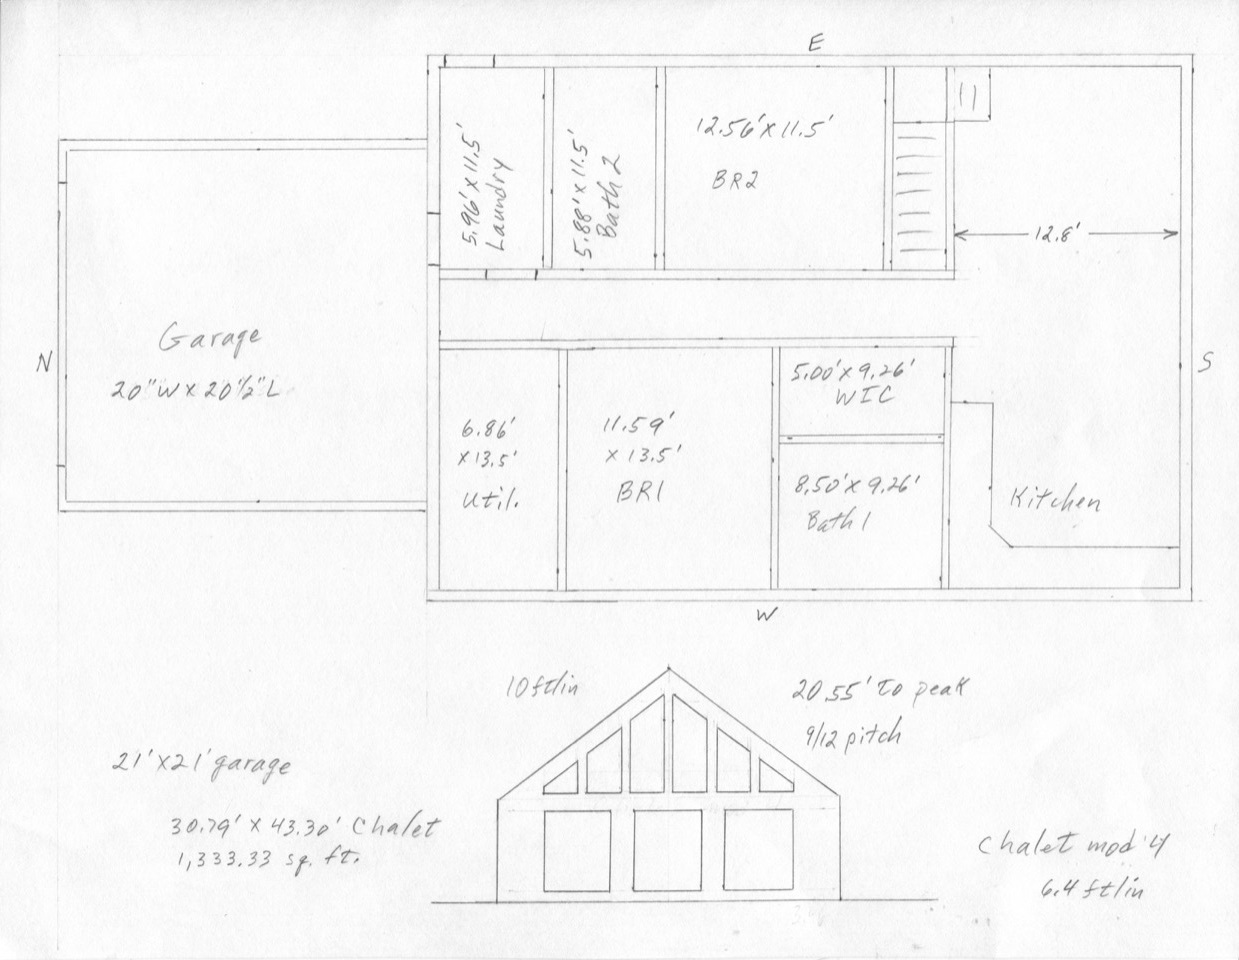 E
5.96' X 11.5'
Laundry
5.88' X 11.5'
Bath 2
12.56' X 11.5'
BR2
12.8'
N
Garage
20"W X 20½"L
S
5.00' X 9.26'
WIC
6.86'
X 13.5'
Util.
11.59'
X 13.5'
BR1
8.50' X 9.26'
Bath 1
Kitchen
W
10 ft/in
20.55' to peak
9/12 pitch
21' X 21' garage
30.79' X 43.30' Chalet
1,333.33 sq. ft.
Chalet mod 4
6.4 ft/in